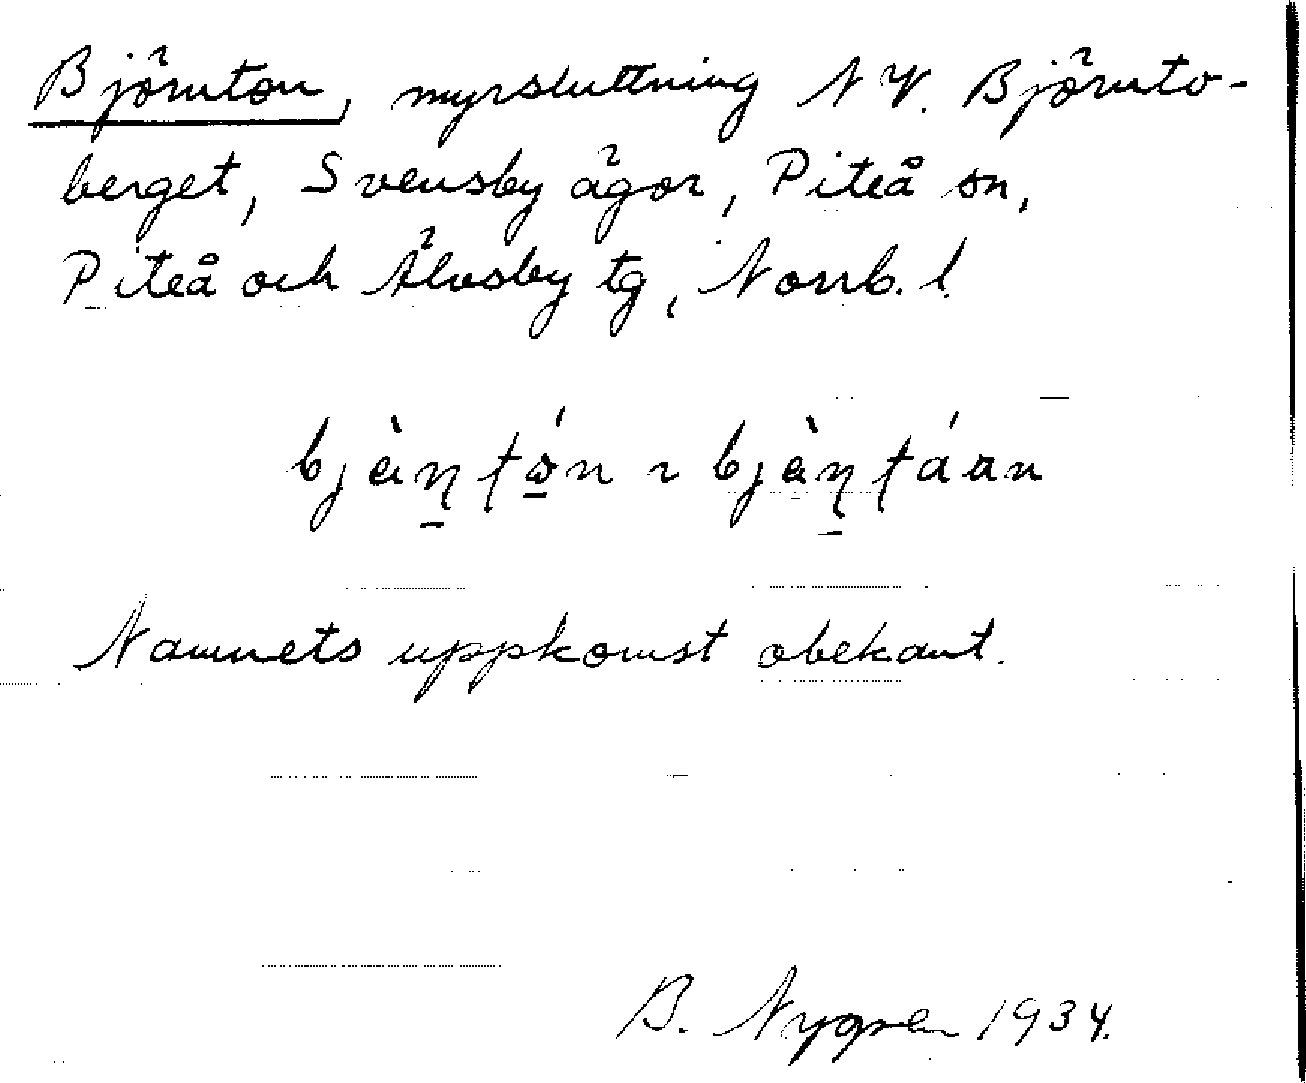 Björnton, myrsluttning N V. Björnto-
berget, Svensby ägor, Piteå sn,
Piteå och Älvsby tg, Norrb. l.
Namnets uppkomst obekant.
B. Nygren 1934.